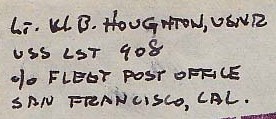 Lt. W B. HOUGHTON, USNR
USS LST 908
c/o FLEET POST OFFICE
SAN FRANCISCO, CAL.